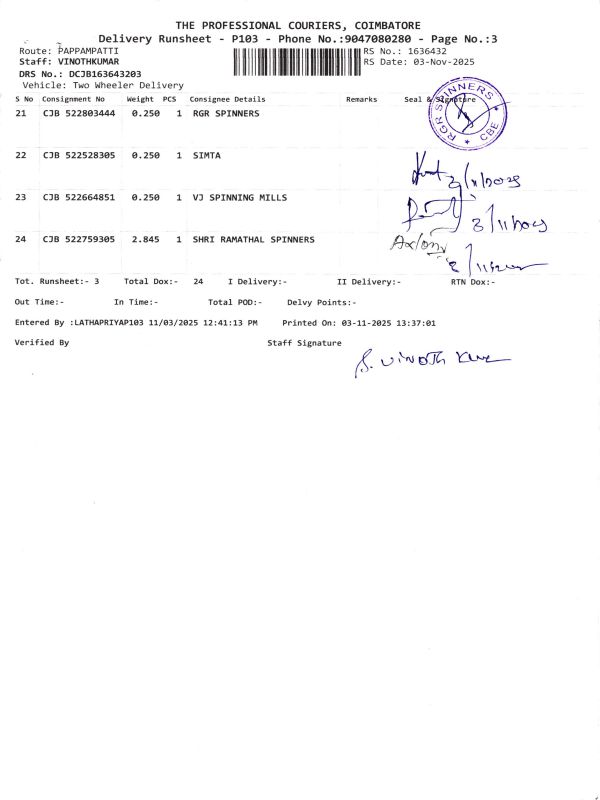 THE PROFESSIONAL COURIERS, COIMBATORE
Delivery Runsheet - P103 - Phone No.:9047080280 - Page No.:3
Route: PAPPAMPATTI RS No.: 1636432
Staff: VINOTHKUMAR RS Date: 03-Nov-2025
DRS No.: DCJB163643203
Vehicle: Two Wheeler Delivery
S No Consignment No Weight PCS Consignee Details Remarks Seal & Signature
21 CJB 522803444 0.250 1 RGR SPINNERS
RGR SPINNERS
CBE
22 CJB 522528305 0.250 1 SIMTA
3/11/2025
23 CJB 522664851 0.250 1 VJ SPINNING MILLS
3/11/2025
24 CJB 522759305 2.845 1 SHRI RAMATHAL SPINNERS
Tot. Runsheet:- 3 Total Dox:- 24 I Delivery:- II Delivery:- RTN Dox:-
Out Time:- In Time:- Total POD:- Delvy Points:-
Entered By :LATHAPRIYAP103 11/03/2025 12:41:13 PM Printed On: 03-11-2025 13:37:01
Verified By Staff Signature
S. VINOTH